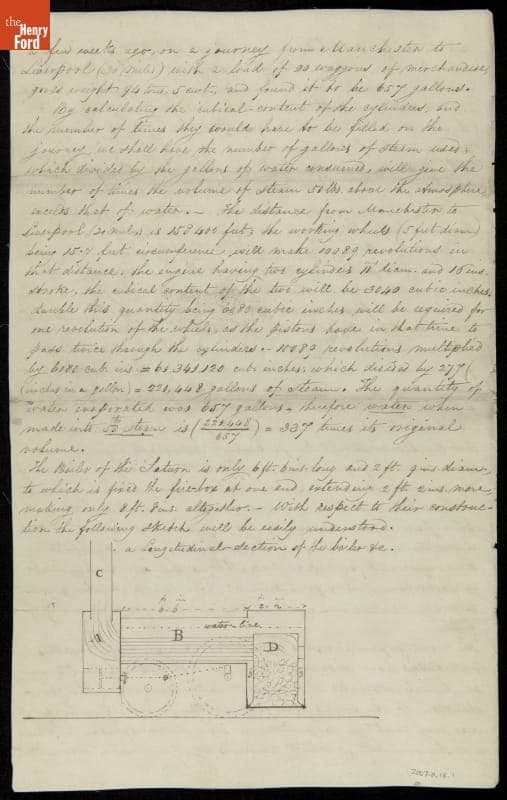 the
Henry
Ford
a few weeks ago, on a journey from Manchester to
Liverpool (30 miles) with a load of 20 waggons of merchandise,
gross weight 94 tons, 5 cwt., and found it to be 657 gallons.
By calculating the cubical content of the cylinders, and
the number of times they would have to be filled on the
journey, we shall have the number of gallons of steam used;
which divided by the gallons of water consumed, will give the
number of times the volume of steam 50 lbs. above the atmosphere
exceeds that of water. — The distance from Manchester to
Liverpool (30 miles) is 158400 feet, the working wheels (5 feet diam)
being 15.7 feet circumference, will make 10089 revolutions in
that distance. The engine having two cylinders 11 in. diam. and 16 ins.
stroke, the cubical content of the two will be 3040 cubic inches.
double this quantity being 6080 cubic inches will be required for
one revolution of the wheels, as the pistons have in that time to
pass twice through the cylinders. — 10089 revolutions multiplied
by 6080 cub. ins = 61.341.120 cub. inches, which divided by 277
(inches in a gallon) = 221,448 gallons of Steam. The quantity of
water evaporated was 657 gallons, therefore water when
made into 50 lb steam is (221,448/657) = 337 times its original
volume.
The Boiler of the Saturn is only 6 ft. 6 ins. long and 2 ft. 9 ins. diam.
to which is fixed the fire-box at one end, extending 2 ft. 2 ins. more,
making only 8 ft. 8 ins. altogether. — With respect to their construc-
tion the following sketch will be easily understood.
a Longitudinal section of the boiler &c.
C
ft. in.
6 . 6
2 . 2
water line
B
D
3
3